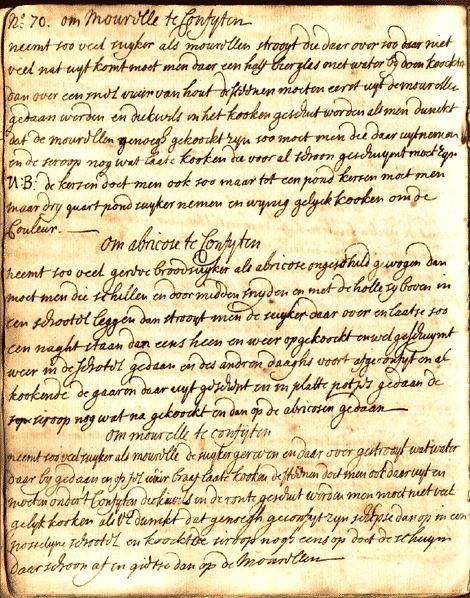 No. 70. om Mourelle te Confyten
neemt soo veel suyker als mourellen strooyt die daer over soo daer niet
veel nat uyt komt moet men daer een half bierglas met water by doen
dan over een snel vuur van hout de steenen moeten eerst uyt de mourellen
gedaan werden en dickwils in het kooken geschut werden als men dunckt
dat de mourellen genoegh gekoockt zyn soo moet men die daer uyt nemen
en de siroop nog wat laate kooken voor al schoon geschuymt moet zyn
N:B: de kersen doet men ook soo maar tot een pond kersen moet men
maar dry quart pond suyker nemen en wynig gelyck kooken om de
Couleur.
om abricose te Confyten
neemt soo veel gereve broodsuyker als abricose ongeschild gewogen dan
moet men die schillen en door midden snyden en met de holle sy boven in
een schootel leggen dan strooyt men de suyker daar over en laatse soo
een naght staan dan eens heen en weer opgekoockt en wel geschuymt
weer in de schotel gedaan en des andren daaghs voort afgeconfyt en al
kookende de gaaren daar uyt geschept en in platte potjes gedaan de
siroop nog wat na gekoockt en dan op de abricosen gedaan
om mourelle te confyten
neemt soo veel suyker als mourelle de suyker gereven en daar over gestrooyt wat water
daar by gedaan en op vuur braaf laate kooken de steenen doet men ook daar uyt en
moeten onder't Confyten dickwils in de ronte geschut worden men moet niet veel
gelyk kooken als U dunckt dat genoegh geconfyt zyn schepse dan op in een
schootel en koockt de siroop nogh eens op doet de schuym
daar schoon af en gietse dan op de Mourellen